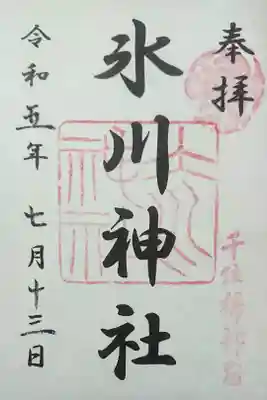 奉拝
氷川神社
令和五年 七月十三日